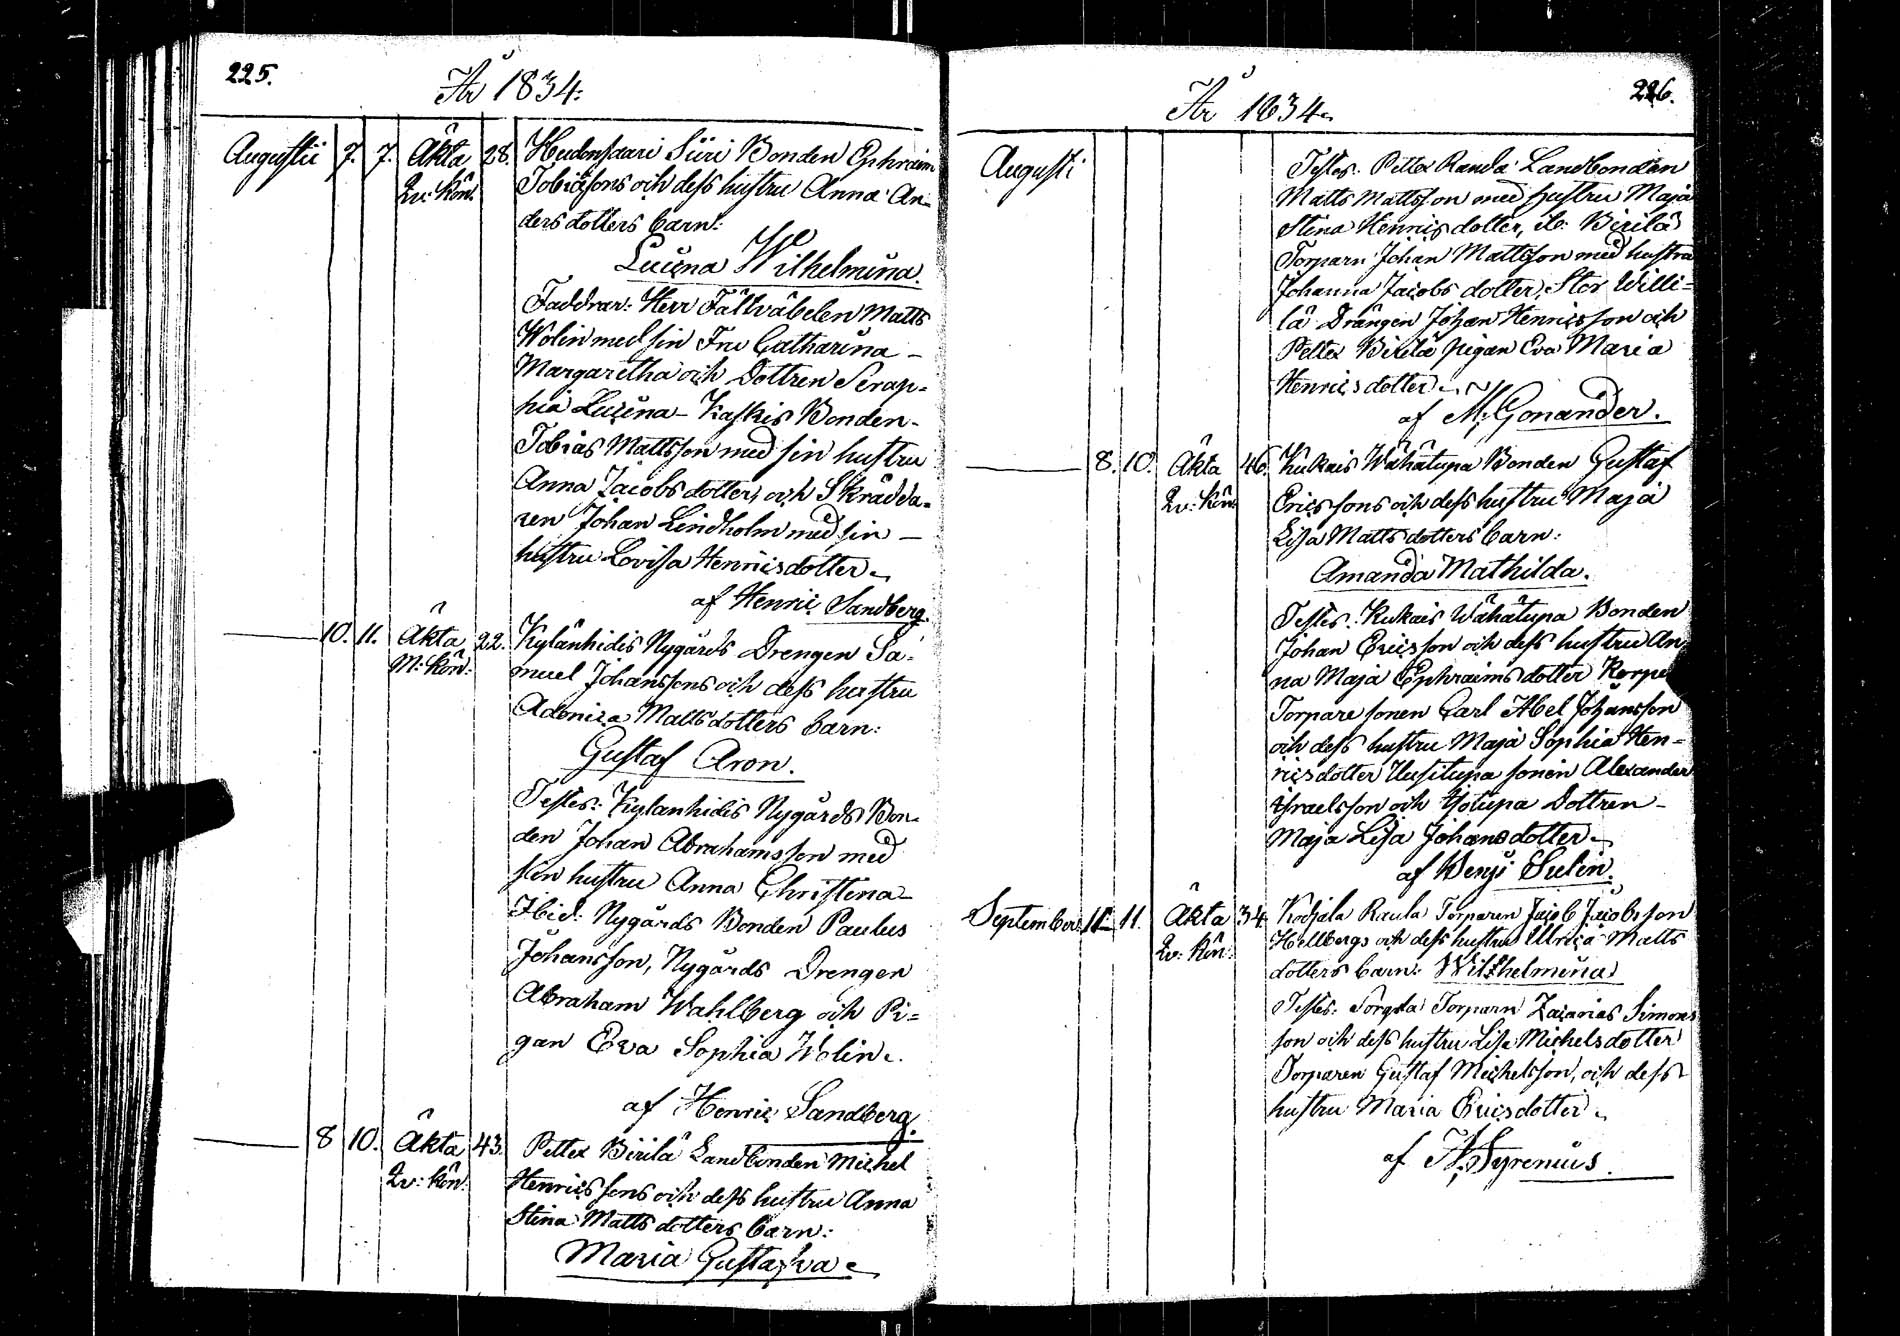 225.
År 1834.
Augustii 7. 7. Äkta 28. Heidensaari Siiri Bonden Ephraim
Qv: Kön. Tobiæsons och dess hustru Anna An-
ders dotters barn:
Lucina Wilhelmina.
Faddrar: Herr Fältväbelen Matts
Wolin med sin Fru Catharina
Margaretha och Dottren Serap-
hia Lucina – Kaskis Bonden
Tobias Mattsson med sin hustru
Anna Jacobs dotter, och Skrädda-
ren Johan Lindholm med sin
hustru Lovisa Henricsdotter.
af Henric Sandberg.
10. 11. Äkta 22. Kylänhidis Nygårds Drengen Sa-
M: Kön: muel Johanssons och dess hustru
Adonica Mattsdotters barn:
Gustaf Aron.
Testes: Kylänhidis Nygårds Bon-
den Johan Abrahamsson med
sin hustru Anna Christina
Ibid: Nygårds Bonden Paulus
Johansson, Nygårds Drengen
Abraham Wahlberg och Pi-
gan Eva Sophia Wolin.
af Henric Sandberg.
8 10. Äkta 43. Petter Birilä Landbonden Michel
Qv: Kön: Henricssons och dess hustru Anna
Stina Matts dotters barn:
Maria Gustafva
226.
År 1834.
Augusti Testes: Petter Raula Landbondan
Matts Mattsson med hustru Maja
Stina Henricsdotter, it: Birilä
Torparn Johan Mattsson med hustru
Johanna Jacobs dotter, Stor Willi-
lä Drängen Johan Henricsson och
Petter Birilä pigan Eva Maria
Henricsdotter.
af M. Gonander.
8. 10. Äkta 46. Kukais Wähätupa Bonden Gustaf
Qv: Kön Ericssons och dess hustru Maja
Lisa Mattsdotters barn:
Amanda Mathilda.
Testes: Kukais Wähätupa Bonden
Johan Ericsson och dess hustru An-
na Maja Ephraims dotter
Torpare sonen Carl Abel Johansson
och dess hustru Maja Sophia Hen-
ricsdotter Uusitupa sonen Alexander
Israelsson och Isotupa Dottren
Maja Lisa Johansdotter.
af Benj: Sulin.
September 11. 11. Äkta 34. Kodjala Raula Torparen Jacob Jacobsson
Qv: Kön: Hellbergs och dess hustru Ulrica Matts
dotters barn: Wilhelmina
Testes: Torparn Zacarias Simons
son och dess hustru Lisa Michelsdotter
Torparen Gustaf Michelsson, och dess
hustru Maria Ericsdotter.
af Fr. Syrenius.